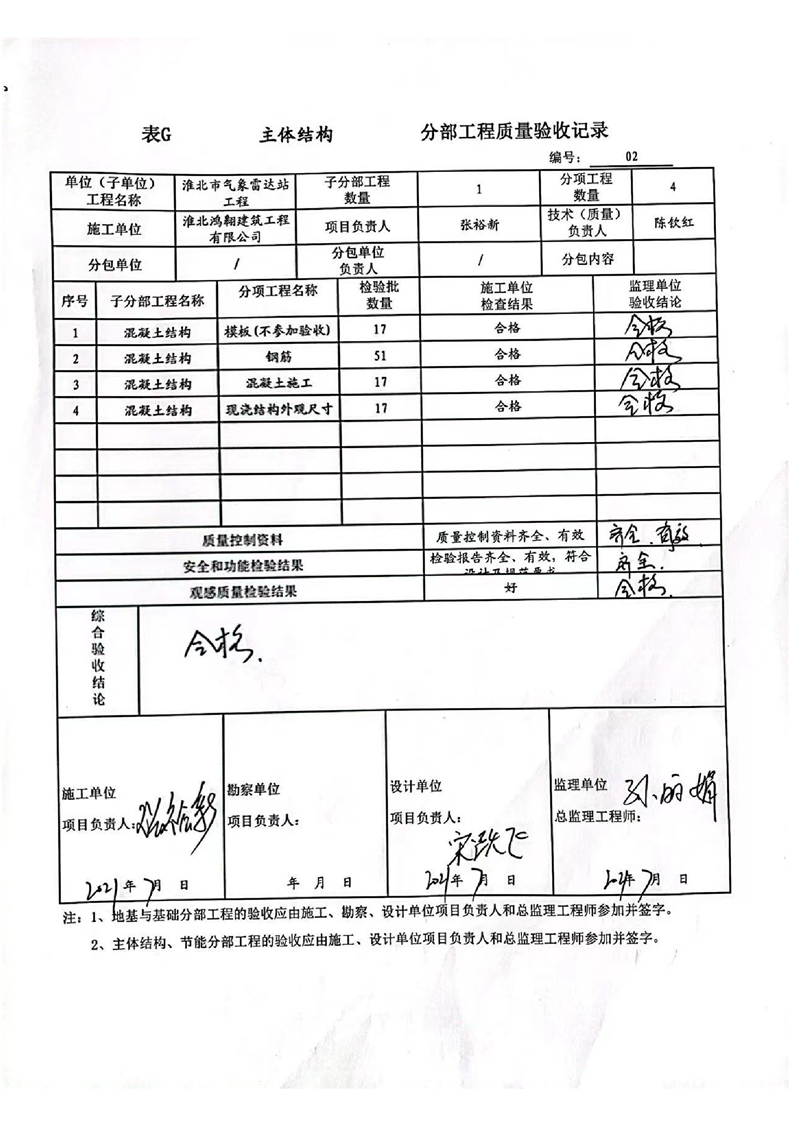 表G 主体结构 分部工程质量验收记录
编号： 02
单位（子单位）工程名称 淮北市气象雷达站工程 子分部工程数量 1 分项工程数量 4
施工单位 淮北鸿翱建筑工程有限公司 项目负责人 张裕新 技术（质量）负责人 陈钦红
分包单位 / 分包单位负责人 / 分包内容
序号 子分部工程名称 分项工程名称 检验批数量 施工单位检查结果 监理单位验收结论
1 混凝土结构 模板(不参加验收) 17 合格 合格
2 混凝土结构 钢筋 51 合格 合格
3 混凝土结构 混凝土施工 17 合格 合格
4 混凝土结构 现浇结构外观尺寸 17 合格 合格
质量控制资料 质量控制资料齐全、有效 齐全、有效.
安全和功能检验结果 检验报告齐全、有效，符合设计及规范要求 齐全.
观感质量检验结果 好 合格.
综合验收结论 合格.
施工单位 勘察单位 设计单位 监理单位 孙丽娟
项目负责人：张裕新 项目负责人： 项目负责人： 总监理工程师：
2021年7月 日 年 月 日 2021年7月 日 2021年7月 日
注：1、地基与基础分部工程的验收应由施工、勘察、设计单位项目负责人和总监理工程师参加并签字。
2、主体结构、节能分部工程的验收应由施工、设计单位项目负责人和总监理工程师参加并签字。